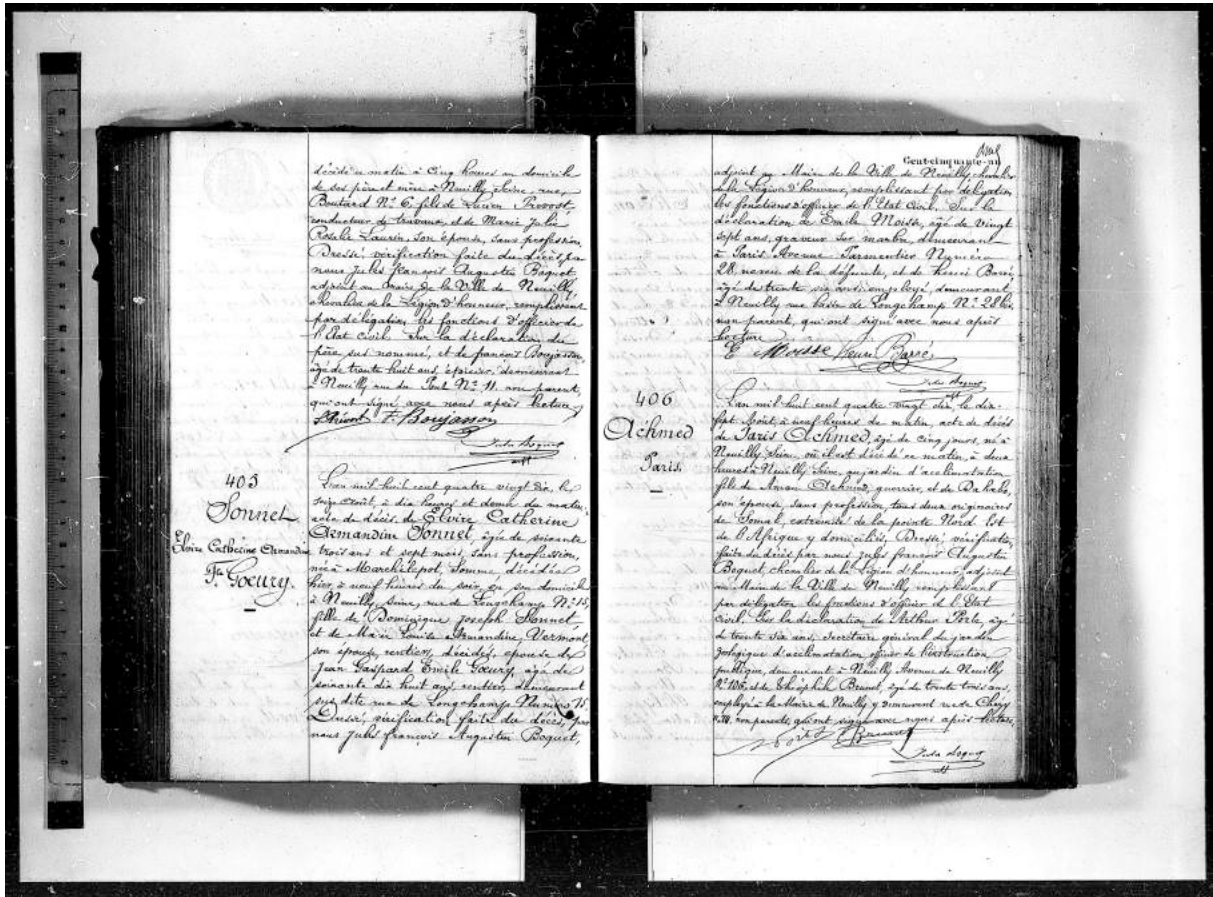 décédé ce matin à cinq heures au domicile
de ses père et mère à Neuilly Seine, rue
Boutard N° 6, fils de Lucien Prevost
conducteur de travaux, et de Marie Julie
Rosalie Laurin, son épouse, sans profession,
Dressé, vérification faite du décès, par
nous Jules François Augustin Boquet
adjoint au Maire de la Ville de Neuilly
chevalier de la Légion d'honneur, remplissant
par délégation les fonctions d'officier de
l'Etat civil. Sur la déclaration du
père, sus nommé, et de François Boujasson
âgé de trente huit ans, épicier, demeurant
à Neuilly rue du Pont N° 11, non parent,
qui ont signé avec nous après lecture
F. Boujasson
Jules Boquet
405
Sonnet
Elvire Catherine Armandine
Fe Gœury.
L'an mil huit cent quatre vingt dix, le
seize août, à dix heures et demie du matin,
acte de décès de Elvire Catherine
Armandine Sonnet, âgée de soixante
trois ans et sept mois, sans profession,
née à Marchélepot, Somme, décédée
hier, à neuf heures du soir, en son domicile
à Neuilly, Seine, rue de Longchamp N° 15,
fille de Dominique Joseph Sonnet,
et de Marie Louise Armandine Vermont
son épouse, rentiers, décédés, épouse de
Jean Gaspard Emile Gœury, âgé de
soixante dix huit ans, rentier, demeurant
susdite rue de Longchamp Numéro 15.
Dressé, vérification faite du décès, par
nous Jules François Augustin Boquet,
Cent-cinquante-un
adjoint au Maire de la Ville de Neuilly chevalier
de la Légion d'honneur, remplissant par délégation
les fonctions d'officier de l'Etat Civil. Sur la
déclaration de Emile Moisse, âgé de vingt
sept ans, graveur sur marbre, demeurant
à Paris Avenue Parmentier Numéro
28, neveu de la défunte, et de Henri Barré,
âgé de trente six ans, employé, demeurant
à Neuilly rue de Longchamp N° 28 bis,
non parent, qui ont signé avec nous après
lecture
E Moisse Henri Barré
Jules Boquet
406
Achmed
Paris.
L'an mil huit cent quatre vingt dix, le dix-
sept Août, à neuf heures du matin, acte de décès
de Paris Achmed, âgé de cinq jours, né à
Neuilly Seine, où il est décédé ce matin, à deux
heures à Neuilly Seine, au jardin d'acclimatation
fils de Aman Achmed, guerrier, et de Dahabo,
son épouse, sans profession tous deux originaires
de Somal, extrémité de la pointe Nord Est
de l'Afrique y domiciliés, Dressé, vérification
faite du décès par nous Jules François Augustin
Boquet, chevalier de la Légion d'honneur, adjoint
au Maire de la Ville de Neuilly remplissant
par délégation les fonctions d'officier de l'Etat
civil. Sur la déclaration de Arthur Porte, âgé
de trente six ans, secrétaire général du jardin
zoologique d'acclimatation, officier de l'instruction
publique, demeurant à Neuilly Avenue de Neuilly
N° 106, et de Théophile Brunet, âgé de trente trois ans,
employé à la Mairie de Neuilly y demeurant rue de Chézy
non parents, qui ont signé avec nous après lecture,
Jules Boquet